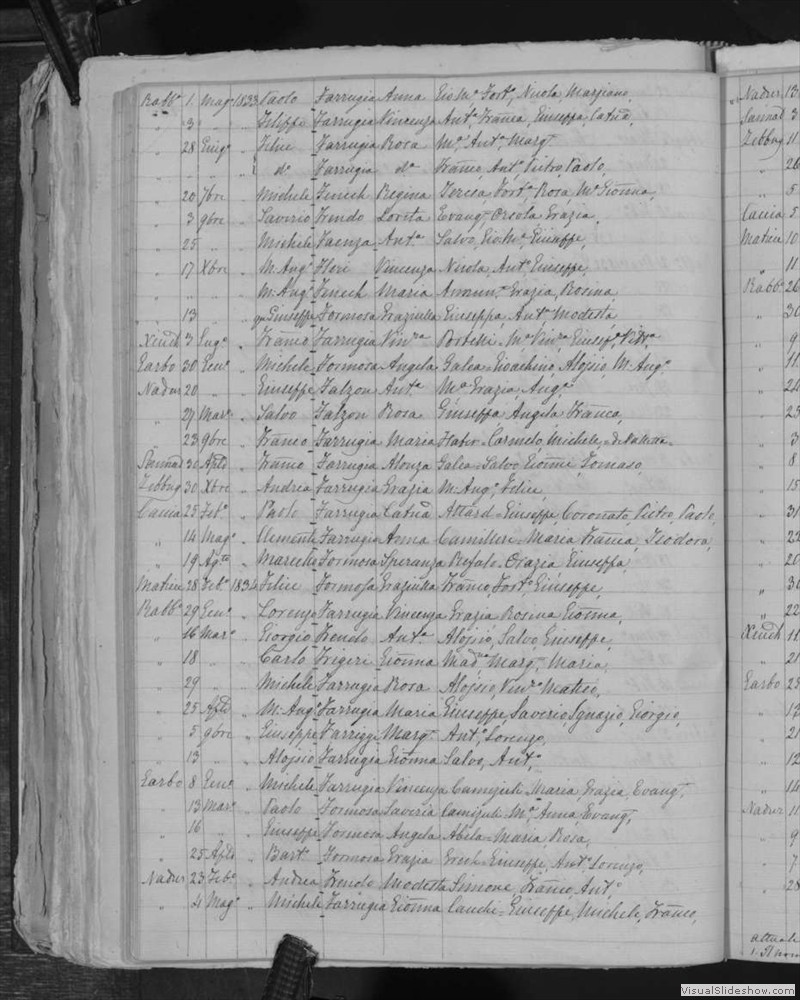 Rabb.º 1 Mag.º 1833 Paolo Farrugia Anna Gio M.ª Fort.º, Nicola, Marziano,
„ 3 „ „ Filippo Farrugia Vincenza Ant.º, Franca, Giuseppa, Catnã,
„ 28 Giug.º „ Felice Farrugia Rosa M.ª, Ant.º, Marg.ª
„ „ „ „ d.º Farrugia d.ª Franco, Ant.º, Pietro Paolo,
„ 20 7bre „ Michele Fenech Regina Teresa, Fort.º, Rosa, M.ª Gionna,
„ 3 9bre „ Saverio Frendo Loreta Evang.ª Orsola, Grazia,
„ 25 „ „ Michele Faenza Ant.ª Salvo, Gio M.ª Giuseppe,
„ 17 Xbre „ M. Ang.º Flori Vincenza Nicola, Ant.º, Giuseppe,
„ „ „ „ M. Ang.º Fenech Maria Annun.ª Grazia, Rosina
„ 13 „ Giuseppe Formosa Graziulla Giuseppa, Ant.ª Modesta
3 Lug.º „ Franco Farrugia Vin.za M.ª Vin.za
Garbo 30 Gen.º „ Michele Formosa Angela Galea = Gioachino, Alojsio, M. Ang.º
Nadur 20 „ „ Giuseppe Falzon Ant.ª M.ª Grazia, Ang.ª
„ 29 Mar.º „ Salvo Falzon Rosa Giuseppa Angela Franca,
„ 23 9bre „ Franco Farrugia Maria Carmelo, Michele,
Sannat Aple „ Franco Farrugia Alonza Galea = Salvo, Gionni, Tomaso,
Zebbug 30 Xbre „ Andrea Farrugia Grazia M. Ang.º Felice,
Caccia 25 Feb.º „ Paolo Farrugia Catnã Attard = Giuseppe, Coronato, Pietro, Paolo,
„ 14 Mag.º „ Clemente Farrugia Anna Camilleri = Maria Franca, Teodora,
„ 19 Ag.to „ Formosa Speranza Refalo = Grazia, Giuseppa,
Matieu 28 Feb.º 1834 Felice Formosa Graziulla Franco, Fort.º, Giuseppe,
Rabb.º 29 Gen.º „ Lorenzo Farrugia Vincenza Grazia Rosina Gionna,
„ 16 Mar.º „ Giorgio Frendo Ant.ª Alojsio, Salvo, Giuseppe,
„ 18 „ „ Carlo Frigeri Gionna Mad.ª Marg.ª Maria,
„ 29 „ Michele Farrugia Rosa Alojsio, Vin.zo Matteo,
„ 25 Aple „ M. Ang.º Farrugia Maria Giuseppe, Saverio, Ignazio, Giorgio,
„ 5 9bre „ Giuseppe Farrugia Marg.ª Ant.º, Lorenzo,
„ 13 „ „ Alojsio Farrugia Gionna Salvo, Ant.º
Garbo 8 Gen.º „ Michele Farrugia Vincenza Camizuli = Maria, Grazia, Evang.ª
„ 13 Mar.º „ Paolo Formosa Saveria Camizuli = M.ª Anna, Evang.ª
„ 16 „ „ Giuseppe Formosa Angela Abela = Maria Rosa,
„ 25 Aple „ Bart.º Formosa Grazia Grech = Giuseppe, Ant.º, Lorenzo,
Nadur 23 Feb.º „ Andrea Frendo Modesta Simone, Franco, Ant.º
„ 4 Mag.º „ Michele Farrugia Gionna Cauchi = Giuseppe, Michele, Franco,
Nadur 13
Sannat 3
Zebbug 11
„ 26
„ 5
Caccia 5
Matieu 10
„ 11
Rabb.º 26
„ 30
„ 9
„ 11
„ 24
„ 23
„ 3
„ 8
„ 15
„ 31
„ 22
„ 20
„ 30
„ 22
11
„ 21
Garbo 23
„ 17
„ 21
„ 12
„ 14
Nadur 11
„ 9
„ 7
„ 28
VisualSlideshow.com